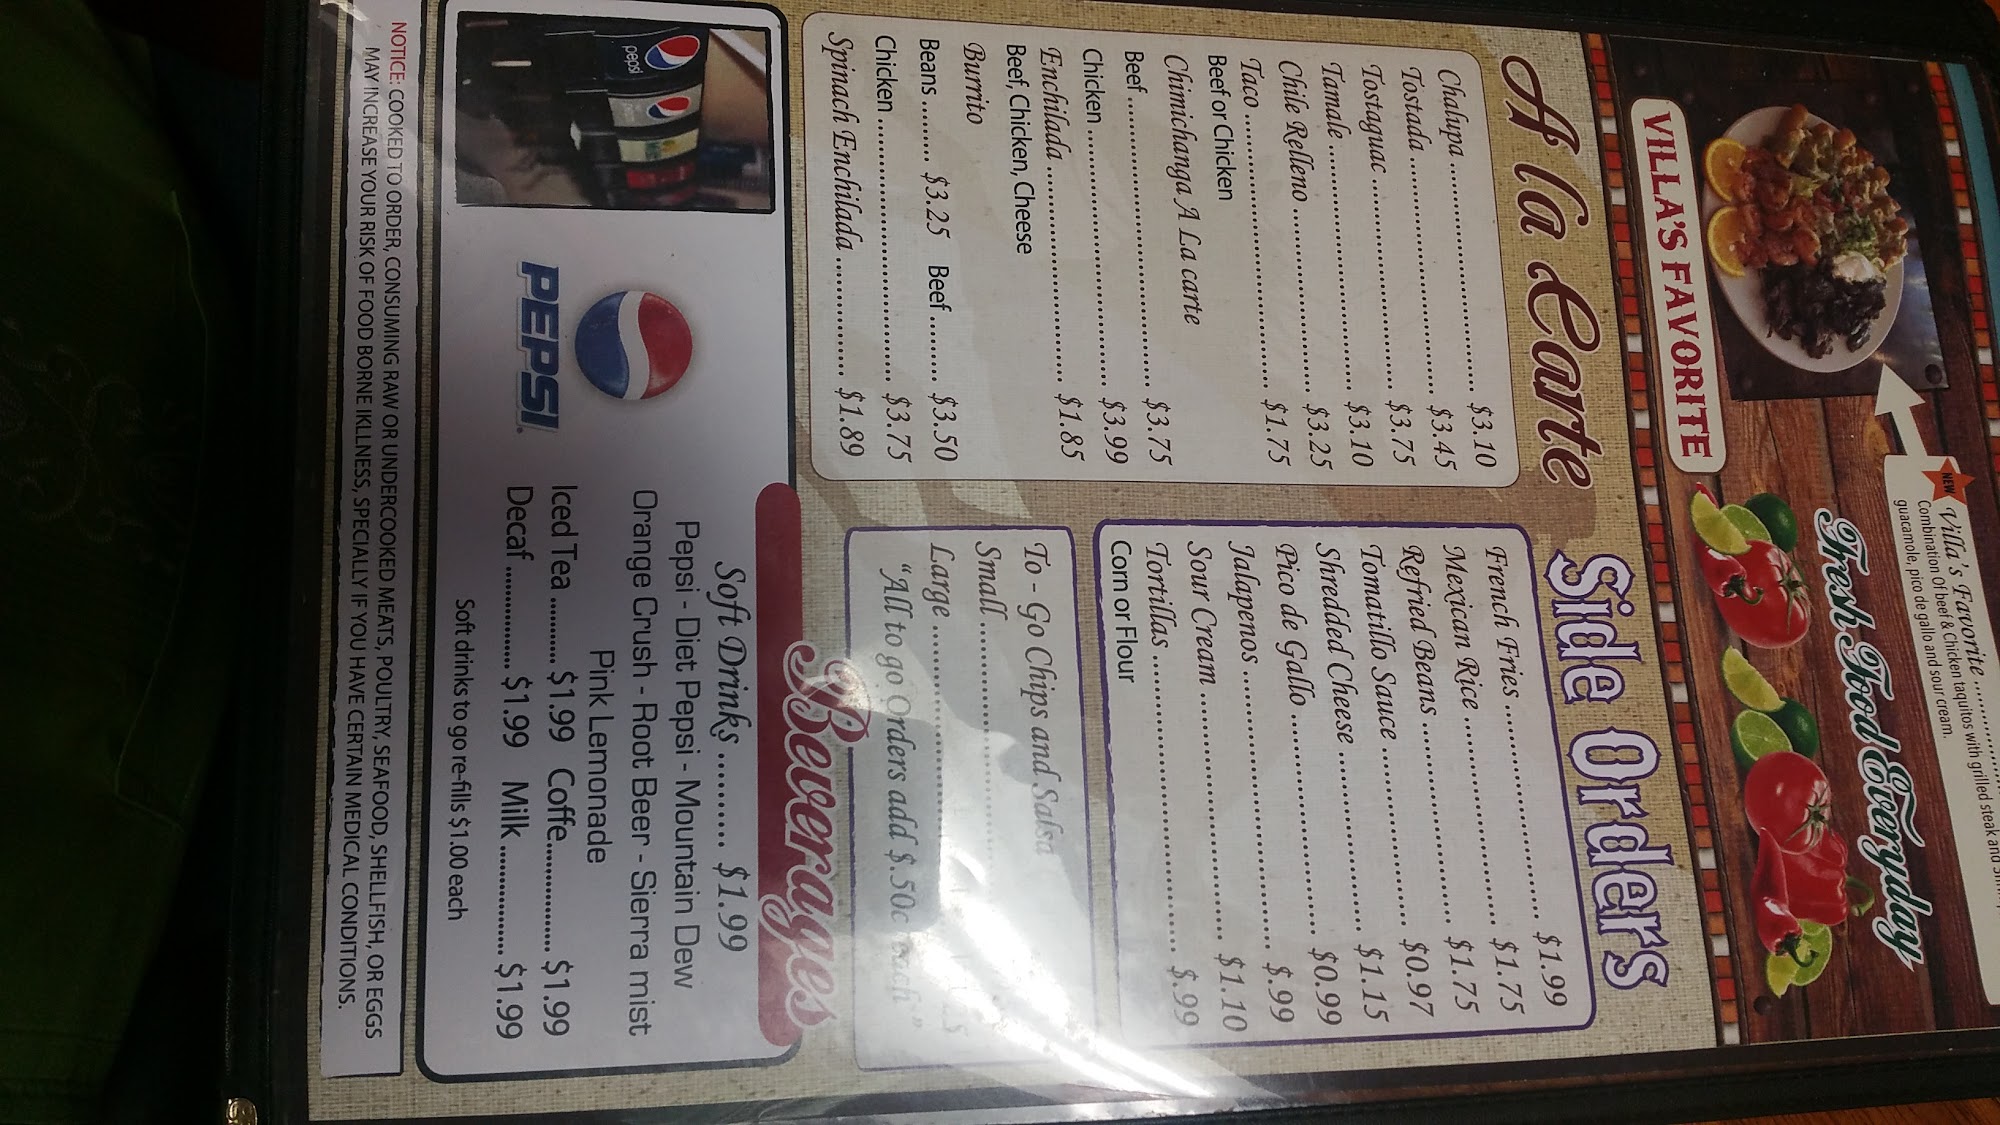 NEW Villa's Favorite
Combination Of beef & Chicken taquitos with grilled steak and
guacamole, pico de gallo and sour cream.
Fresh Food Everyday
VILLA'S FAVORITE
A la Carte
Chalupa $3.10
Tostada $3.45
Tostaguac $3.75
Tamale $3.10
Chile Relleno $3.25
Taco $1.75
Beef or Chicken
Chimichanga A La carte
Beef $3.75
Chicken $3.99
Enchilada $1.85
Beef, Chicken, Cheese
Burrito
Beans $3.25 Beef $3.50
Chicken $3.75
Spinach Enchilada $1.89
Side Orders
French Fries $1.99
Mexican Rice $1.75
Refried Beans $1.75
Tomatillo Sauce $0.97
Shredded Cheese $1.15
Pico de Gallo $0.99
Jalapenos $.99
Sour Cream $1.10
Tortillas $.99
Corn or Flour
To - Go Chips and Salsa
Small
Large
"All to go Orders add $.50c each"
Beverages
Soft Drinks $1.99
Pepsi - Diet Pepsi - Mountain Dew
Orange Crush - Root Beer - Sierra mist
Pink Lemonade
Iced Tea $1.99 Coffe $1.99
Decaf $1.99 Milk $1.99
Soft drinks to go re-fills $1.00 each
pepsi
PEPSI
NOTICE: COOKED TO ORDER, CONSUMING RAW OR UNDERCOOKED MEATS, POULTRY, SEAFOOD, SHELLFISH, OR EGGS
MAY INCREASE YOUR RISK OF FOOD BORNE IKLLNESS, SPECIALLY IF YOU HAVE CERTAIN MEDICAL CONDITIONS.